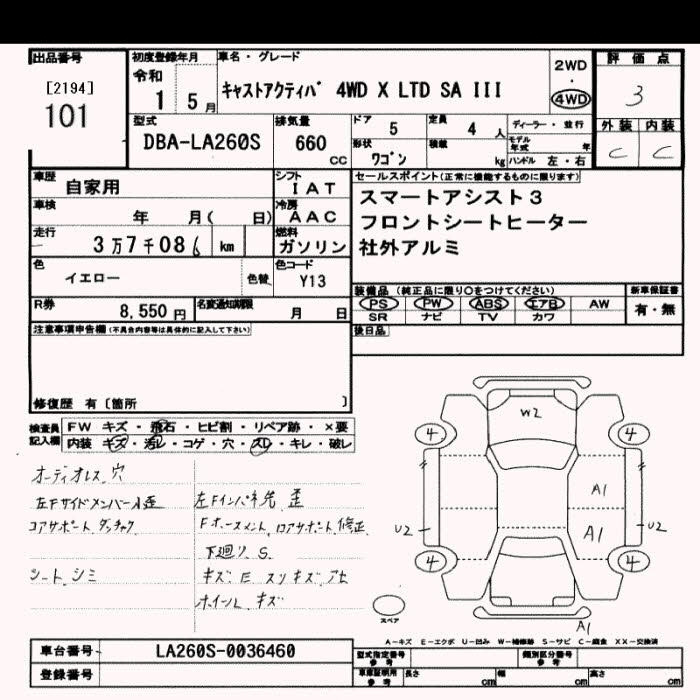 出品番号
[2194]
101
初度登録年月
令和
1 5月
車名・グレード
キャストアクティバ 4WD X LTD SA III
2WD
・
4WD
評価点
3
外装 内装
C C
型式
DBA-LA260S
排気量
660
cc
ドア 5
定員 4 人
ディーラー・並行
形状 ワゴン
積載 kg
モデル年式 年
ハンドル 左・右
車歴 自家用
シフト IAT
車検 年 月( 日)
冷房 AAC
走行 3万7千08 km
燃料 ガソリン
色 イエロー
色替
色コード Y13
R券 8,550円
名変通知期限 月 日
セールスポイント(正常に機能するものに限ります)
スマートアシスト3
フロントシートヒーター
社外アルミ
装備品 (純正品に限り○をつけてください)
新車保証書
PS PW ABS エアB AW
有・無
SR ナビ TV カワ
後日品
注意事項申告欄(不具合内容等は具体的に記入して下さい)
修復歴 有〔箇所 〕
検査員記入欄
FW キズ・飛石・ヒビ割・リペア跡・×要
内装 キズ・汚レ・コゲ・穴・スレ・キレ・破レ
オーディオレス 穴
左Fサイドメンバー 歪
左Fインパネ先 歪
コアサポート
Fホースメント、ロアサポート 修正
下廻リ S
シート シミ
キズ E スリキズ アセ
ホイール キズ
W2
4 4
A1
U2 A1 U2
4 4
スペア
A1
A-キズ E-エクボ U-凹み W-補修跡 S-サビ C-腐食 XX-交換済
車台番号 LA260S-0036460
登録番号
型式指定番号 参考
類別区分番号 参考
車庫証明用 参考
長さ cm
幅 cm
高さ cm